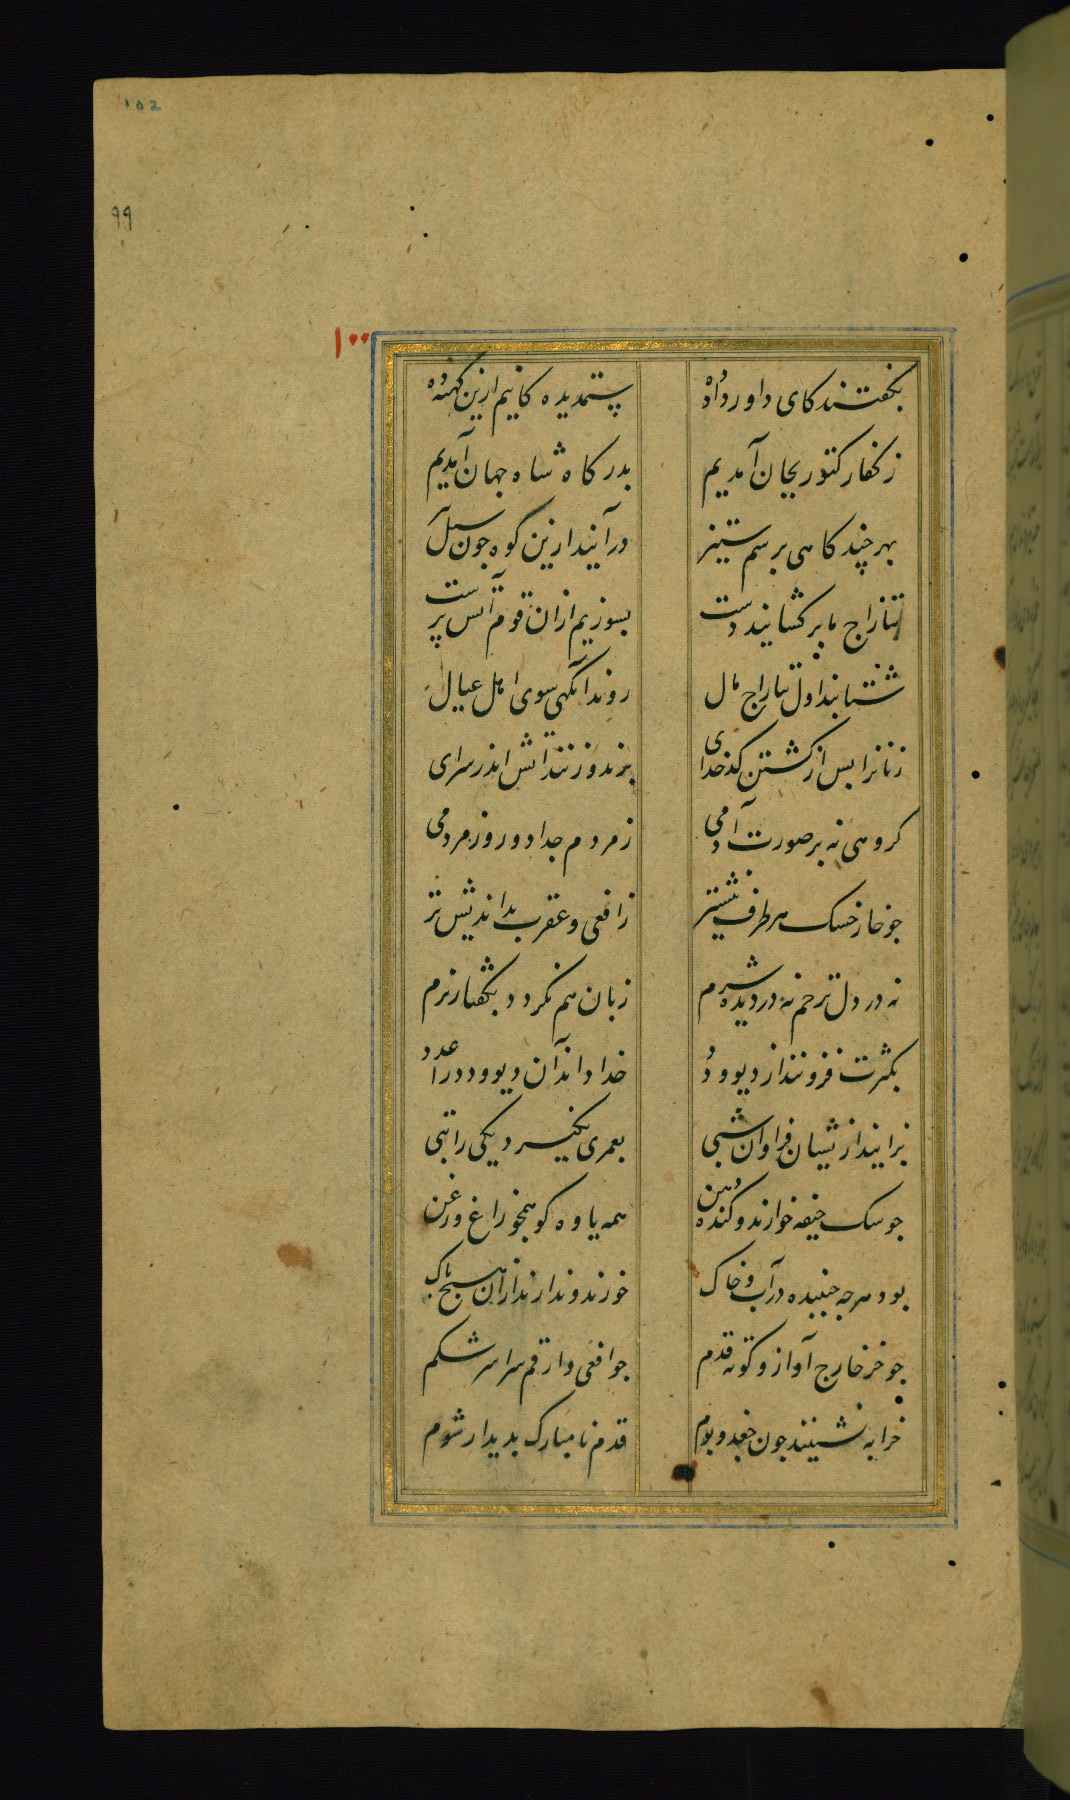 ۱۵۲
۹۹
۱۰۰
بکفتند کای داور داد ده ستمدیده کانیم ازین کهنه ده
ز کفار کتور بجان آمدیم بدرکاه شاه جهان آمدیم
بهر چند کاهی برسم ستیز درآیند ازین کوه جون سیل
بتاراج ما بر کشایند دست بسوزیم ازان قوم آتش پرست
شتابند اول بتاراج مال روند آنکهی سوی اهل عیال
زنانرا بس از کشتن کدخدای برند و زنند آتش اندر سرای
کروهی نه بر صورت آدمی ز مردم جدا دور از مردمی
جو خار خسک هر طرف نیشتر ز افعی و عقرب بداندیش تر
نه در دل ترحم نه در دیده شرم زبان هم نکردد بکفتار نرم
بکثرت فزونند از دیو و دد خدا داند آن دیو و دد را عدد
بزایند ازیشان فراوان شبی بعمری نمیرد یکی را تبی
جو سک جیفه خوارند و کنده دهن همه یاوه کو همجو زاغ و زغن
بود هرجه جنبنده در آب و خاک خورند و ندارند ازان هیج باک
جو خر خارج آواز و کوته قدم جو افعی و ارقم سراسر شکم
خرابه نشینند جون جغد و بوم قدم نامبارک بدیدار شوم